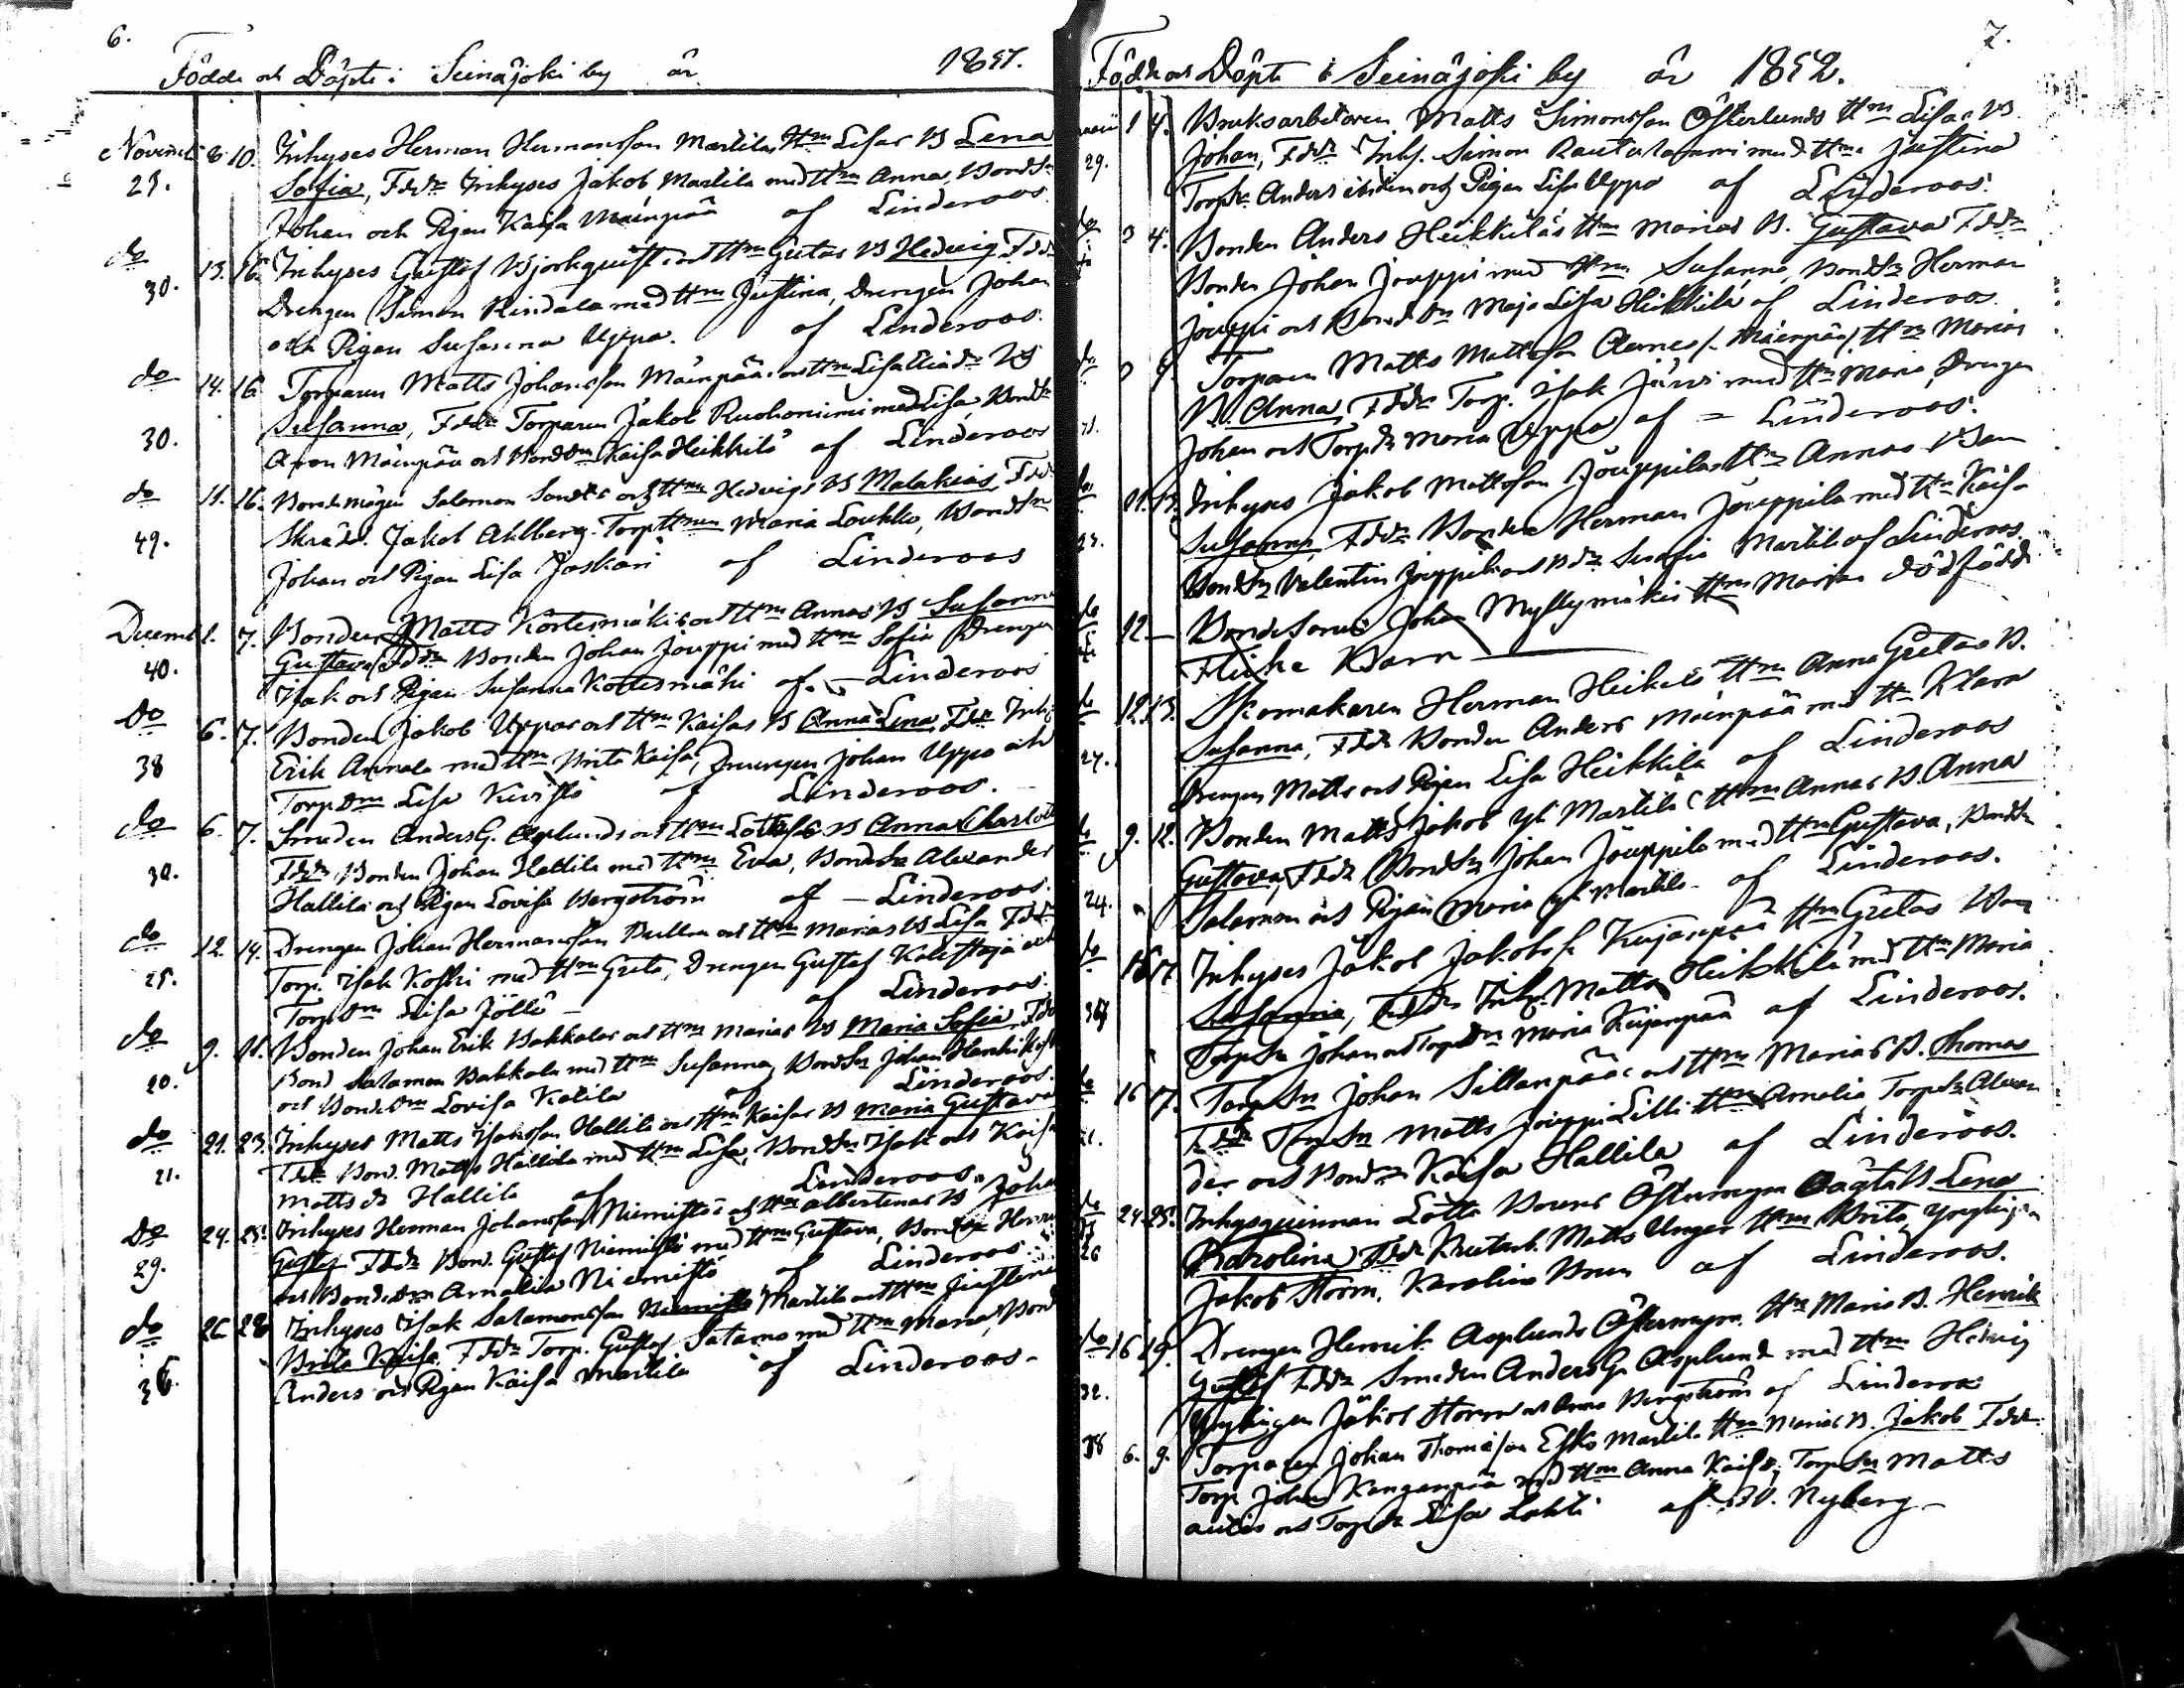 6.
Födde och Döpte i Seinäjoki by år 1851.
Novemb 8 10. Inhyses Herman Hermansson Martilas Hm Lisas B Lena
23. Sofia, Fddr Inhyses Jakob Martila med Hm Anna, BondSn
Johan och Pigan Kaisa Mäenpää af Linderoos
do 13. 16. Inhyses Gustaf Björkquist och Hm Gretas B Hedvig Fddr
30. Drengen Simon Rindala med Hm Justina, Drengen Johan
och Pigan Susanna Uppa. af Linderoos.
do 14. 16 Torparen Matts Johansson Mäenpääs och Hm Lisa B
Susanna, Fddr Torparen Jakob Ruohoniemi med Lisa, BondSn
30. Aron Mäenpää och BondDn Kaisa Heikkilä af Linderoos
do 11. 16. Bondemågen Salomon och Hm Hedvigs B Malakias Fddr
49. Skrädd. Jakob Ahlberg. TorpHm Maria Loukko, BondSn
Johan och Pigan Lisa Jaskari af Linderoos
Decemb 1. 7. Bonden Matts Kortesmäkis och Hm Annas B Susanna
40. Gustava Fddr Bonden Johan Jouppi med Hm Sofia Drengen
Isak och Pigan Susanna Kortesmäki af Linderoos
Do 6. 7. Bonden Jakob Uppas och Hm Kaisas B Anna Lena Fddr Inh
38 Erik Annala med Hm Brita Kaisa, Drengen Johan Uppa och
TorpDm Lisa Kivistö af Linderoos.
do 6. 7. Smeden Anders G. Asplunds och Hm Lottas B Anna Charlott
30. Fddr Bonden Johan Hallila med Hm Eva, BondeSn Alexander
Hallila och Pigan Lovisa Bergström af Linderoos.
do 12. 14. Drengen Johan Hermansson och Hm Marias B Lisa Fddr
25. Torp. Isak Koski med Hm Greta, Drengen Gustaf och
TorpDm Lisa Jölle af Linderoos.
do 9. 11. Bonden Johan Erik Bakkalas och Hm Marias B Maria Sofia Fdd
20. Bond Salomon Bakkala med Hm Susanna, BondSn Johan
och BondeDm Lovisa Katila af Linderoos.
do 21. 23. Inhyses Matts Isaksson Hallila och Hm Kaisas B Maria Gustava
21. Fddr Bond. Matts Hallila med Hm Lisa, BondSn Isak och Kaisa
Mattsdr Hallila af Linderoos.
Do 24. 25. Inhyses Herman Johansson Niemistös och Hm Albertinas B Joha
29. Gustaf Fddr Bond. Gustaf Niemistö med Hm Gustava, BondSn Herm
och BondeDm Amalia Niemistö af Linderoos.
do 26 28 Inhyses Isak Salamonsson Martila och Hm Justina
36. Brita Kaisa. Fddr Torp. Gustaf Satamo med Hm Maria, Bond
Anders och Pigan Kaisa Martila af Linderoos.
7.
Födde och Döpte i Seinäjoki by år 1852.
1 4. Bruksarbetaren Matts Simonsson Österlunds Hm Lisas B
29. Johan, Fddr Inhs. Simon Rautalammi med Hm Justina
TorpSn Anders och Pigan Lisa Uppa af Linderoos.
do 3 4. Bonden Anders Heikkiläs Hm Marias B. Gustava Fddr
Bonden Johan Jouppi med Hm Susanna, BondSn Herman
Jouppi och BondDn Maja Lisa Heikkilä af Linderoos.
do 9. Torparen Matts Mattsson (Mäenpää) Hm Marias
B. Anna, Fddr Torp. Isak Järvi med Hm Maria, Drengen
Johan och TorpDr Maria Uppa af = Linderoos.
do 11. 13. Inhyses Jakob Mattsson Jouppilas Hm Annas Barn
23. Susanna, Fddr Bonden Herman Jouppila med Hm Kaisa
BondSn Valentin Jouppila och Bdr Serafia Martila af Linderoos.
do 12 — BondeSonens Johan Myllymäkis Hm Marias dödfödd
Flicke Barn
do 12 13. Skomakaren Herman Heikkilä Hm Anna Gretas B.
Susanna, Fddr Bonden Anders Mäenpää med Hm Klara
27. Drengen Matts och Pigan Lisa Heikkilä af Linderoos
do 9. 12. Bonden Matts Jakob yli Martila Hm Annas B. Anna
Gustava, Fddr BondSn Johan Jouppila med Hm Gustava, BondSn
24. Salomon och Pigan Maria yli Martila af Linderoos.
do 16 17. Inhyses Jakob Jakobss. Kujanpää Hm Gretas Barn
Susanna, Fddr Inhs. Matts Heikkilä med Hm Maria
TorpSn Johan och TorpDn Maria Kujanpää af Linderoos.
do 16 17. TorpSn Johan Sillanpääs och Hm Marias B. Thomas
21. Fddr TorpSn Matts Jouppi Lilli Hm Amalia TorpSn Alexan
der och BondDn Kaisa Hallila af Linderoos.
do 24. 25. Inhysqvinnan Lotta Bruns Östermyra oägta B Lena
26 Karolina Fddr Krutarb. Matts Unger Hm Brita, Ynglingen
Jakob Storm, Karolina Brun af Linderoos.
do 16 19. Drengen Henrik Asplunds Östermyra. Hm Marias B. Henrik
Gustaf Fddr Smeden Anders G. Asplund med Hm Hedvig
32. Ynglingen Jakob Storm och Anna Bergström af Linderoos
38 6. 9. Torparen Johan Thomasson Esko Martila Hm Marias B. Jakob Fddr
Torp Johan Kanganpää med Hm Anna Kaisa, TorpSn Matts
och TorpDr Lisa Lahti af Nyberg